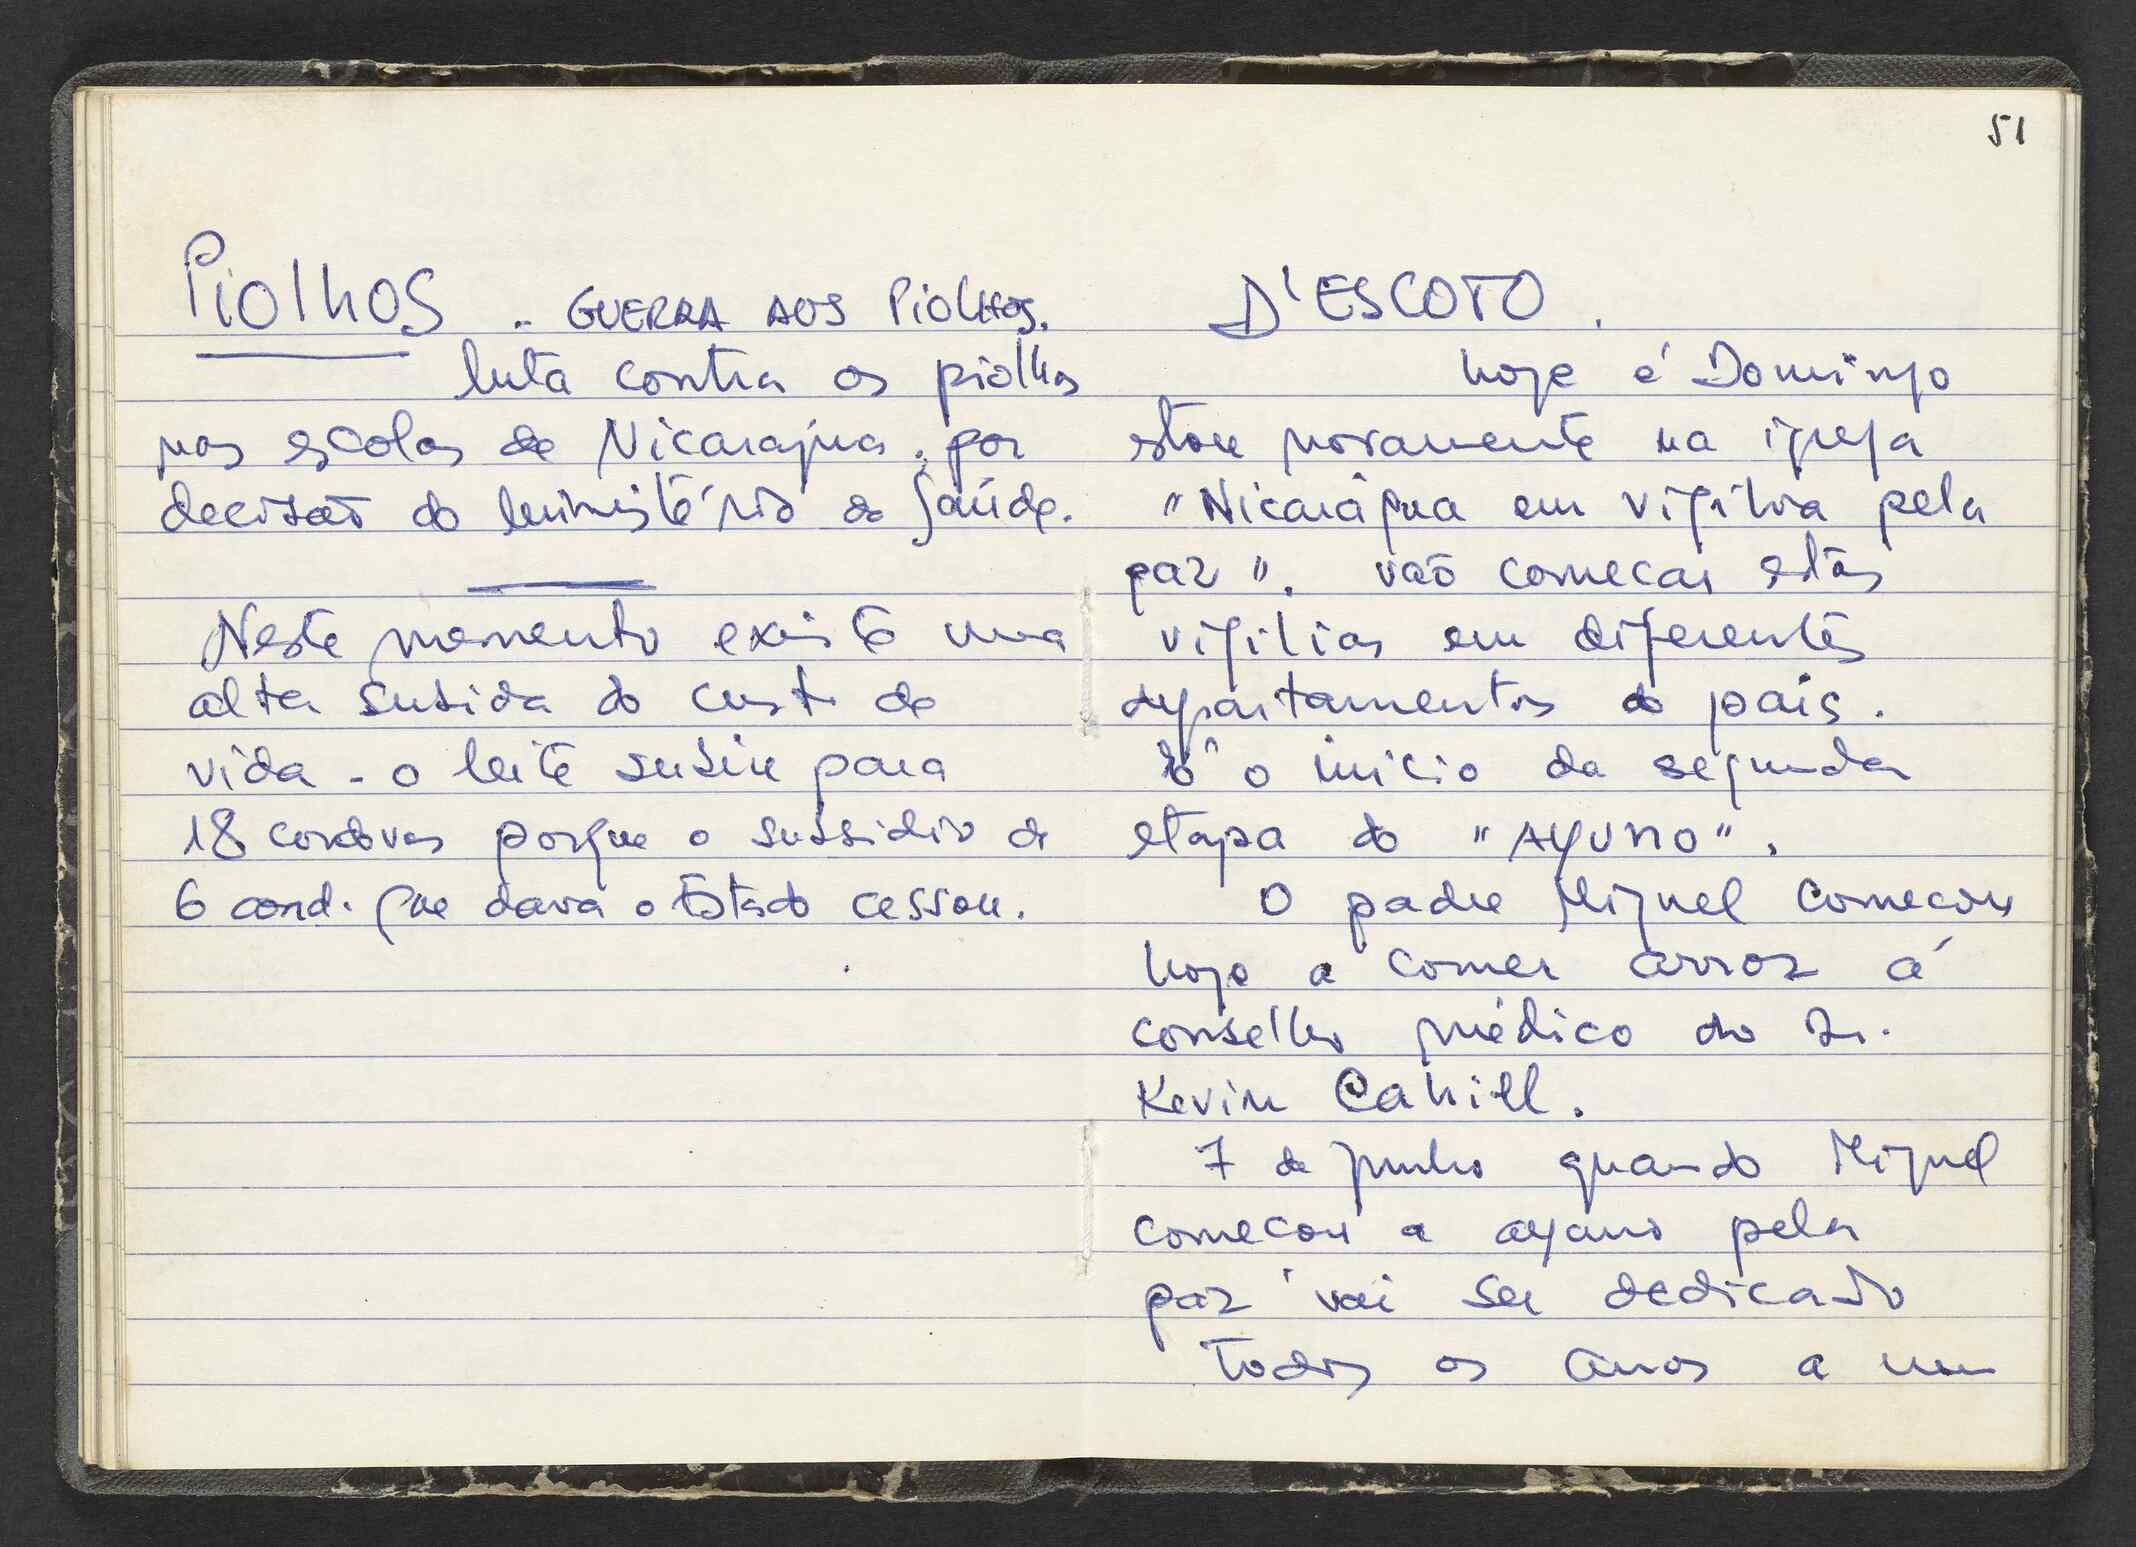 Piolhos - GUERRA AOS PiOLHOS.
luta contra os piolhos
nas escolas de Nicaragua, por
decisão do ministério da Saúde.
Neste momento existe uma
alta subida do custo da
vida - o leite subiu para
18 cordovas porque o subsidio de
6 cord. que dava o Estado cessou.
51
D'ESCOTO.
hoje é Domingo
estou novamente na igreja
"Nicarágua em vigilia pela
paz". vão comecar estas
vigilias em diferentes
departamentos do pais.
É o inicio da segunda
etapa do "AYUNO".
O padre Miguel comecou
hoje a comer arroz á
conselho médico do Dr.
Kevin Cahill.
7 de junho quando Miguel
comecou a ayuno pela
paz vai ser dedicado
todos os anos a um